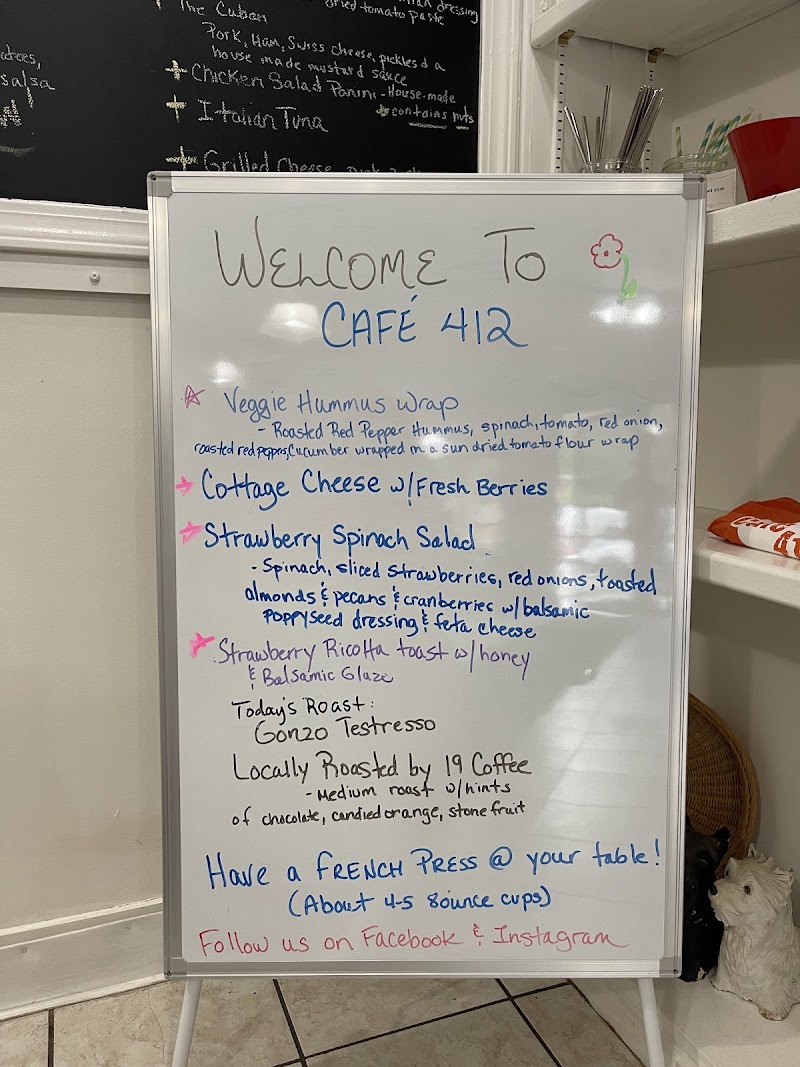 The Cuban
dried tomato paste
dressing
Pork, Ham, Swiss cheese, pickles d a
house made mustard sauce
salsa
+ Chicken Salad Panini - House-made
contains nuts
+ Italian Tuna
+ Grilled Cheese
WELCOME TO
CAFÉ 412
Veggie Hummus Wrap
- Roasted Red Pepper Hummus, spinach, tomato, red onion,
roasted red peppers, Cucumber wrapped in a sun dried tomato flour wrap
Cottage Cheese w/Fresh Berries
Strawberry Spinach Salad
- Spinach, sliced strawberries, red onions, toasted
almonds & pecans & cranberries w/ balsamic
poppyseed dressing & feta cheese
Strawberry Ricotta toast w/honey
& Balsamic Glaze
Today's Roast:
Gonzo Testresso
Locally Roasted by 19 Coffee
- Medium roast w/hints
of chocolate, candied orange, stone fruit
Have a FRENCH PRESS @ your table!
(About 4-5 8ounce cups)
Follow us on Facebook & Instagram